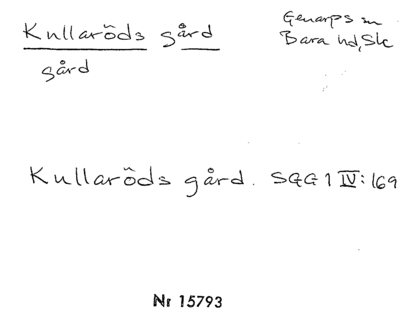 Kullaröds gård
Genarps sn
Bara hd, Sk
gård
Kullaröds gård. SGG 1 IV: 169
Nr 15793